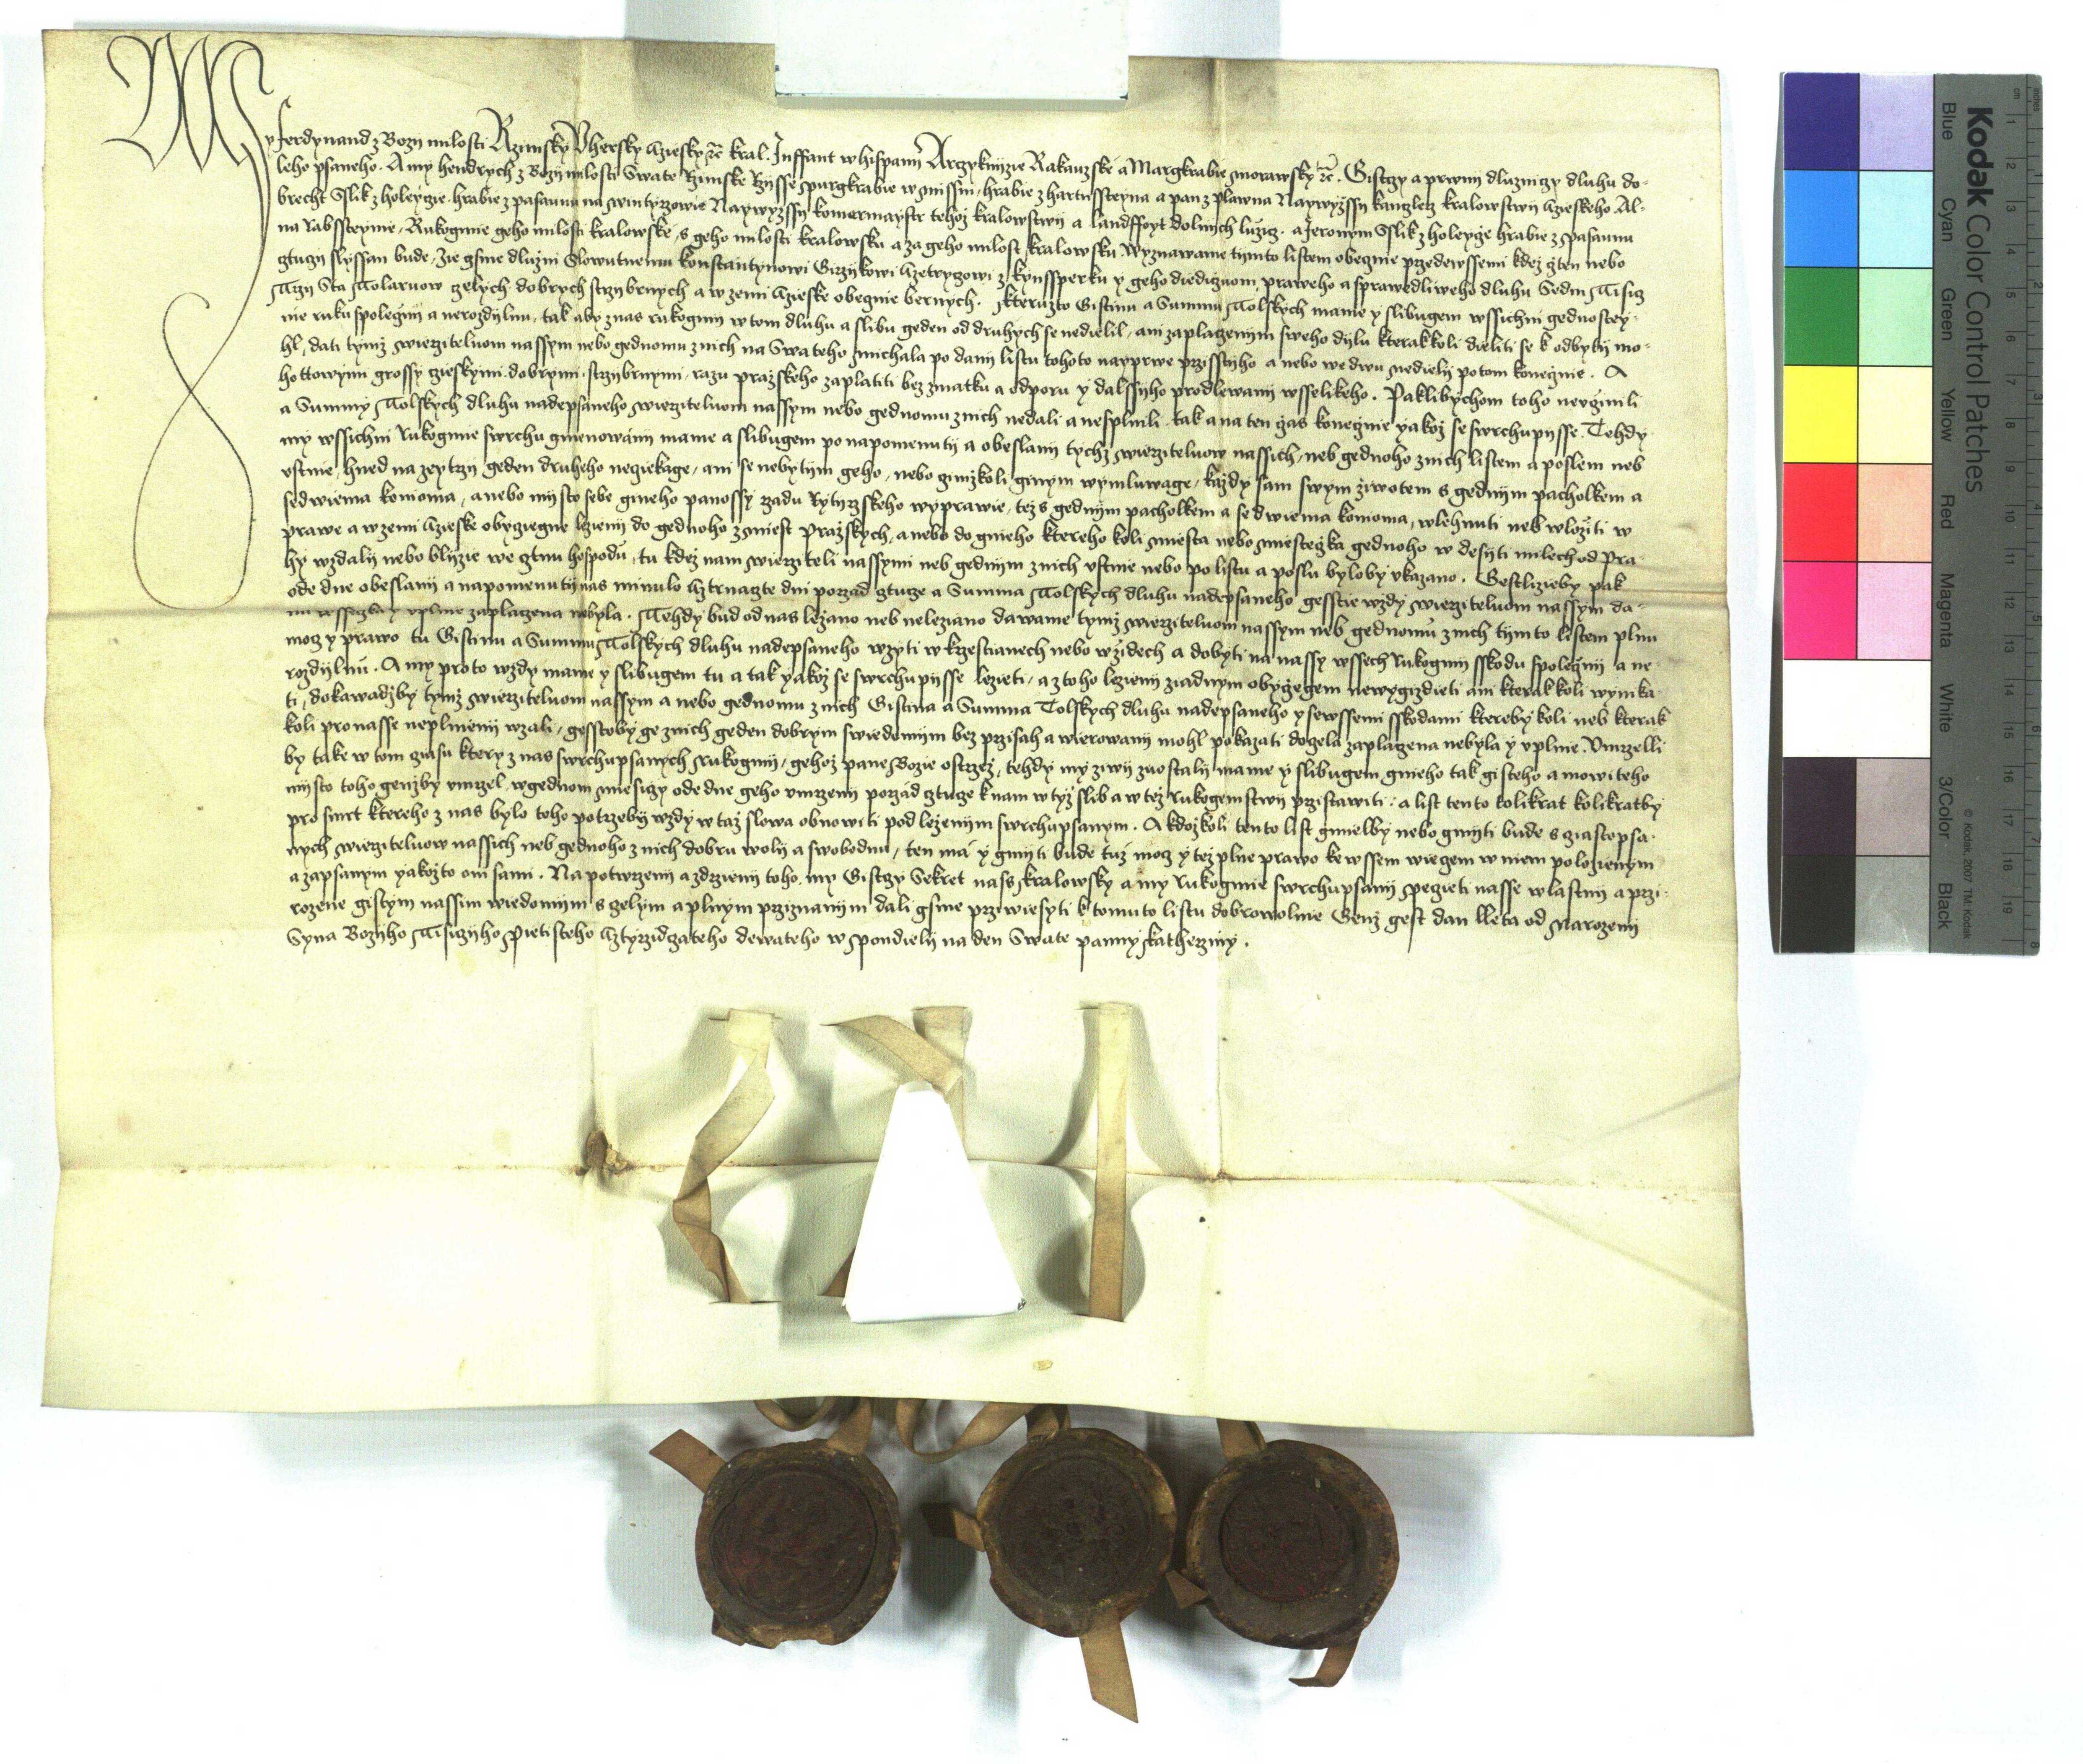 My Ferdynand z Bozy milosti Rzimsky Vhersky Czesky ꝛc̄ kral. Inffant w hispanij Arczyknijzie Rakauzské a Margkrabie morawsky ꝛc̄. Gistczy a prwnij dluzniczy dluhu do-
leho psaneho. A my hendrych z Bozij milosti Swate Rzimské Rzisse purgkrabie w missni, hrabie z hartnssteyna a pan z plawna Naywyzssy kanczlerz kralowstwij Czieskeho. Al-
brecht Sslik z holeycze hrabie z pasaunu na wintyrzowie Naywyzssy komermaystr tehoz kralowstwij a landffoyt dolnijch luzicz. a Jeronym Sslik z holeyge hrabie z pasaunu
na Rabssteynie, Rukogmie geho milosti kralowské, s geho milosti kralowsku a za geho milost kralowsku. Wyznawame tijmto listem obecznie przedewssemi kdez cžten nebo
cztucy slyssan bude, zie gsme dluzni Slowutnemu konstantynowi Girzikowi Czetryczowi z kynssperku y geho diediczuom, praweho a sprawedliweho dluhu Sedm Tisicz
Trzy Sta Tolaruow czelych dobrych strzybrnych a w zemi Czieske obecznie bernych. kteruzto Gistinu a Summu Tolskych mame y slibugem wssichni gednostey-
nie ruku spoleczni a nerozdylnu, tak aby z nas rukogmij w tom dluhu a slibu geden od druhych se nedielil, ani zaplacenijm sweho dijlu kterakkoli dieliti se k odbyti mo-
hl, dati tymz wierzitelnom nassym nebo gednomu z nich na Swateho Michala po danij listu tohoto nayprwe przisstijho a nebo we dwu nedielij potom koneczne. A
hottowymi grossy czeskymi dobrymi strzybrnymi, razu prazskeho zaplatiti bez zmatku a odporu y dalssyho prodlewanij wsselikeho. Paklibychom toho nevcžinili
a Summy Tolskych dluhu nadepsaneho wierziteluom nassym nebo gednomu z nich nedali a nesplnili tak a na ten cžas konecžnie yakož se swrchupijsse. Tehdy
my wssichni Rukogmie swrchu gmenowanij mame a slibugem po napomenutij a obeslanij tychz wierziteluow nassich, neb gednoho z nich listem a poslem neb
vstnie, hned na zeytrzij geden druheho neczekage, ani se nebytijm geho, nebo gimžkoli ginym wymluwage, každy sam swym ziwotem s gednijm pacholkem a
se dwiema konioma, a nebo mijsto sebe gineho panossy rzadu Rytyrzskeho wyprawie, tez s gednijm pacholkem a se dwiema konioma, wlehnuti neb wložiti w
prawe a w zemi Czieske obyczegne leženij do gednoho z miest Prazskych, a nebo do gineho kteréhokoli miesta nebo miesteczka gednoho w desijti milech od Pra-
hy wzdalij nebo blijzie we cztnu hospodu, tu kdez nam wierziteli nassymi neb gednijm z nich vstnie nebo po listu a poslu byloby vkazano. Gestlizieby pak
ode dne obeslanij a napomenutij nas minulo Cztrnaczte dni porzad cztucze a Summa Tolskych dluhu nadepsaneho gesstie wždy wierziteluom nassym da-
na wsseczka y vplnie zaplacena nebyla. Tehdy bud od nas ležano neb neleziano dawame tymž wierziteluom nassym neb gednomu z nich tijmto listem plnu
mocz y prawo tu Gistinu a Summu Tolskych dluhu nadepsaneho wzyti w krzestianech nebo w židech a dobyti na nassy wssech Rukogmij sskodu spolecžnij a ne-
rozdijlnu. A my proto wždy mame y slibugem tu a tak yakož se swrchupijsse lezieti, a z toho leženij ziadnym obycžegem newygizdieti ani kterakkoli wynika-
ti, dokawadžby tymz wierziteluom nassym a nebo gednomu z nich Gistina a Summa Tolskych dluhu nadepsaneho y sewssemi sskodami ktereby koli neb kterak
koli pro nasse neplnienij wzali, gesstoby ge z nich geden dobrym swiedomijm bez przisah a wierowanij mohl pokazati docela zaplacena nebyla y vplnie. Vmrzelli
by take w tom cziasu ktery z nas swrchupsanych Rukogmij, gehož pane Bozie ostrzež, tehdy my ziwij zuostalij mame y slibugem gineho tak gisteho a mowiteho
mijsto toho genžby vmrzel, w gednom miesiczy ode dne geho vmrzenij porzad cztucze k nam w tyž slib a w tež Rukogemstwij przistawiti, a list tento kolikrat kolikratby
pro smrt ktereho z nas bylo toho potrzeby wždy w taž slowa obnowiti pod leženijm swrchupsanym. A kdožkoli tento list gmielby nebo gmijti bude s ziastopsa-
nych wierziteluow nassich neb gednoho z nich dobru wolij a swobodnu, ten má y gmijti bude tuž mocz y tež plne prawo ke wssem wieczem w niem položenym
a zapsanym yakožto oni sami. Na potwrzenij a zdrzienij toho. my Gistczy Sekret nass kralowsky a my Rukogmie swrchupsanij peczeti nasse wlastnij a przi-
rozene gistym nassim wiedomijm s czelym a plnym przyznanijm dali gsme przywiesyti k tomuto listu dobrowolnie Genž gest dan Lleta od Narozenij
Syna Bozijho Tisiczijho pietisteho Cztyrzidczateho dewateho w pondielij na den Swate panny Katherziny.
Kodak Color Control Patches
© Kodak, 2007 TM: Kodak
Blue Cyan Green Yellow Red Magenta White 3/Color Black
inches 1 2 3 4 5 6 7 8
cm 1 2 3 4 5 6 7 8 9 10 11 12 13 14 15 16 17 18 19